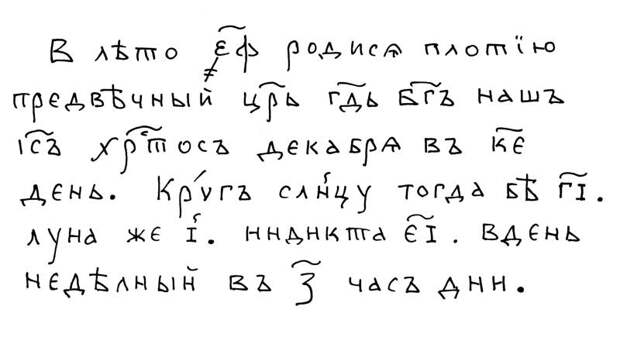 В лѣто ҂є҃ф родисѧ плотїю
предвѣчный цр҃ь гд҃ь бг҃ъ нашъ
іс҃ъ хрⷭ҇тосъ декабрѧ въ к҃є
день. Крꙋ́гъ слн҃цу тогда бѣ г҃і.
луна же і҃. индикта є҃і. вдень
недѣлный въ з҃ часъ дни.